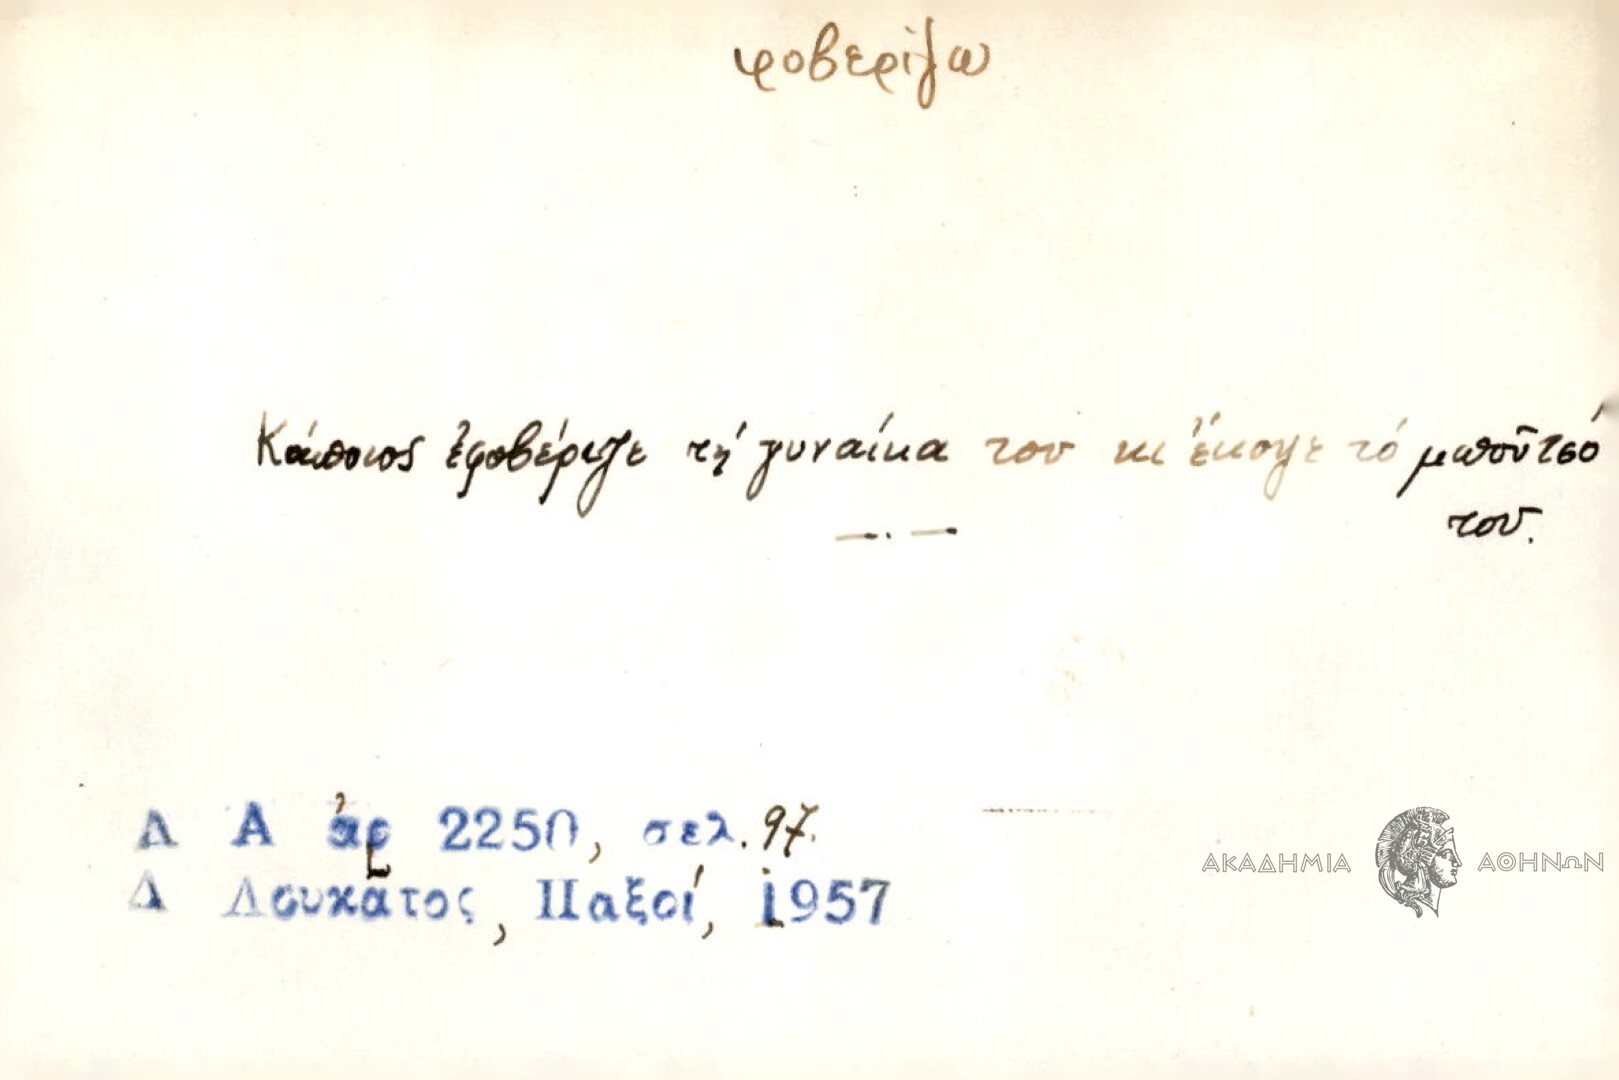 φοβερίζω
Κάποιος ἐφοβέριζε τή γυναίκα του κι ἔκοψε τό μποῦτσό
του.
Λ Α ἀρ 2250, σελ. 97.
Δ Λουκᾶτος, Παξοί, 1957
ΑΚΑΔΗΜΙΑ ΑΘΗΝΩΝ